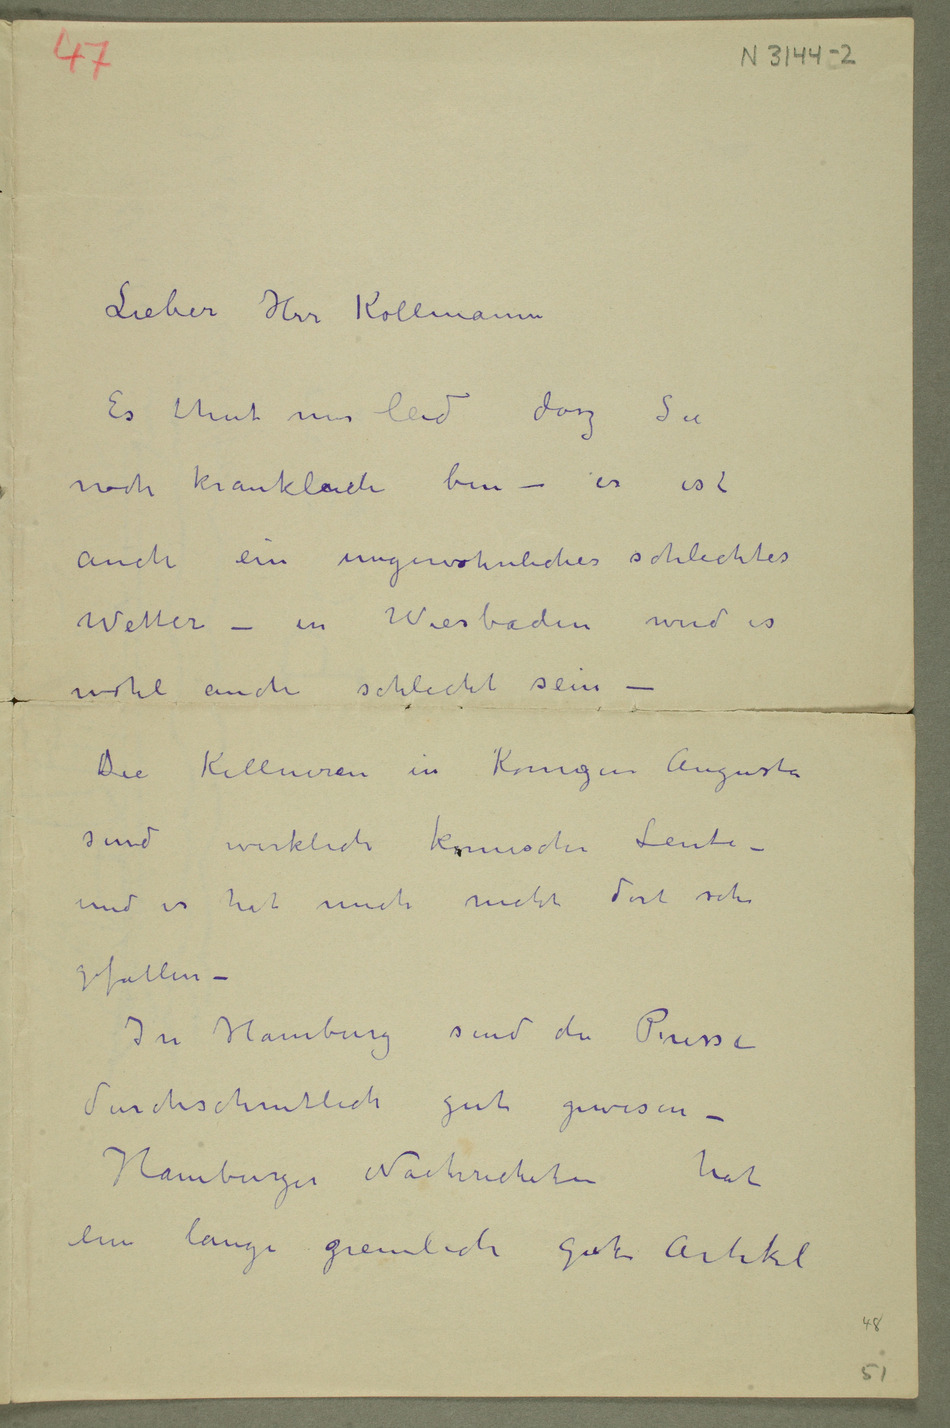 47
N 3144-2
Lieber Herr Kollmann
Es thut mir leid dasz Sie
noch kranklich bin – es ist
auch ein ungewohnliches schlechtes
Wetter – in Wiesbaden wird es
wohl auch schlecht sein –
Die Kellneren in Konigin Augusta
sind werklich komische Leute –
und es hat mich nicht dort sehr
gefallen –
In Hamburg sind die Presse
durchschnitlich gut gewesen –
Hamburger Nachrichten hat
ein lange ziemlich gute Artikel
48
51